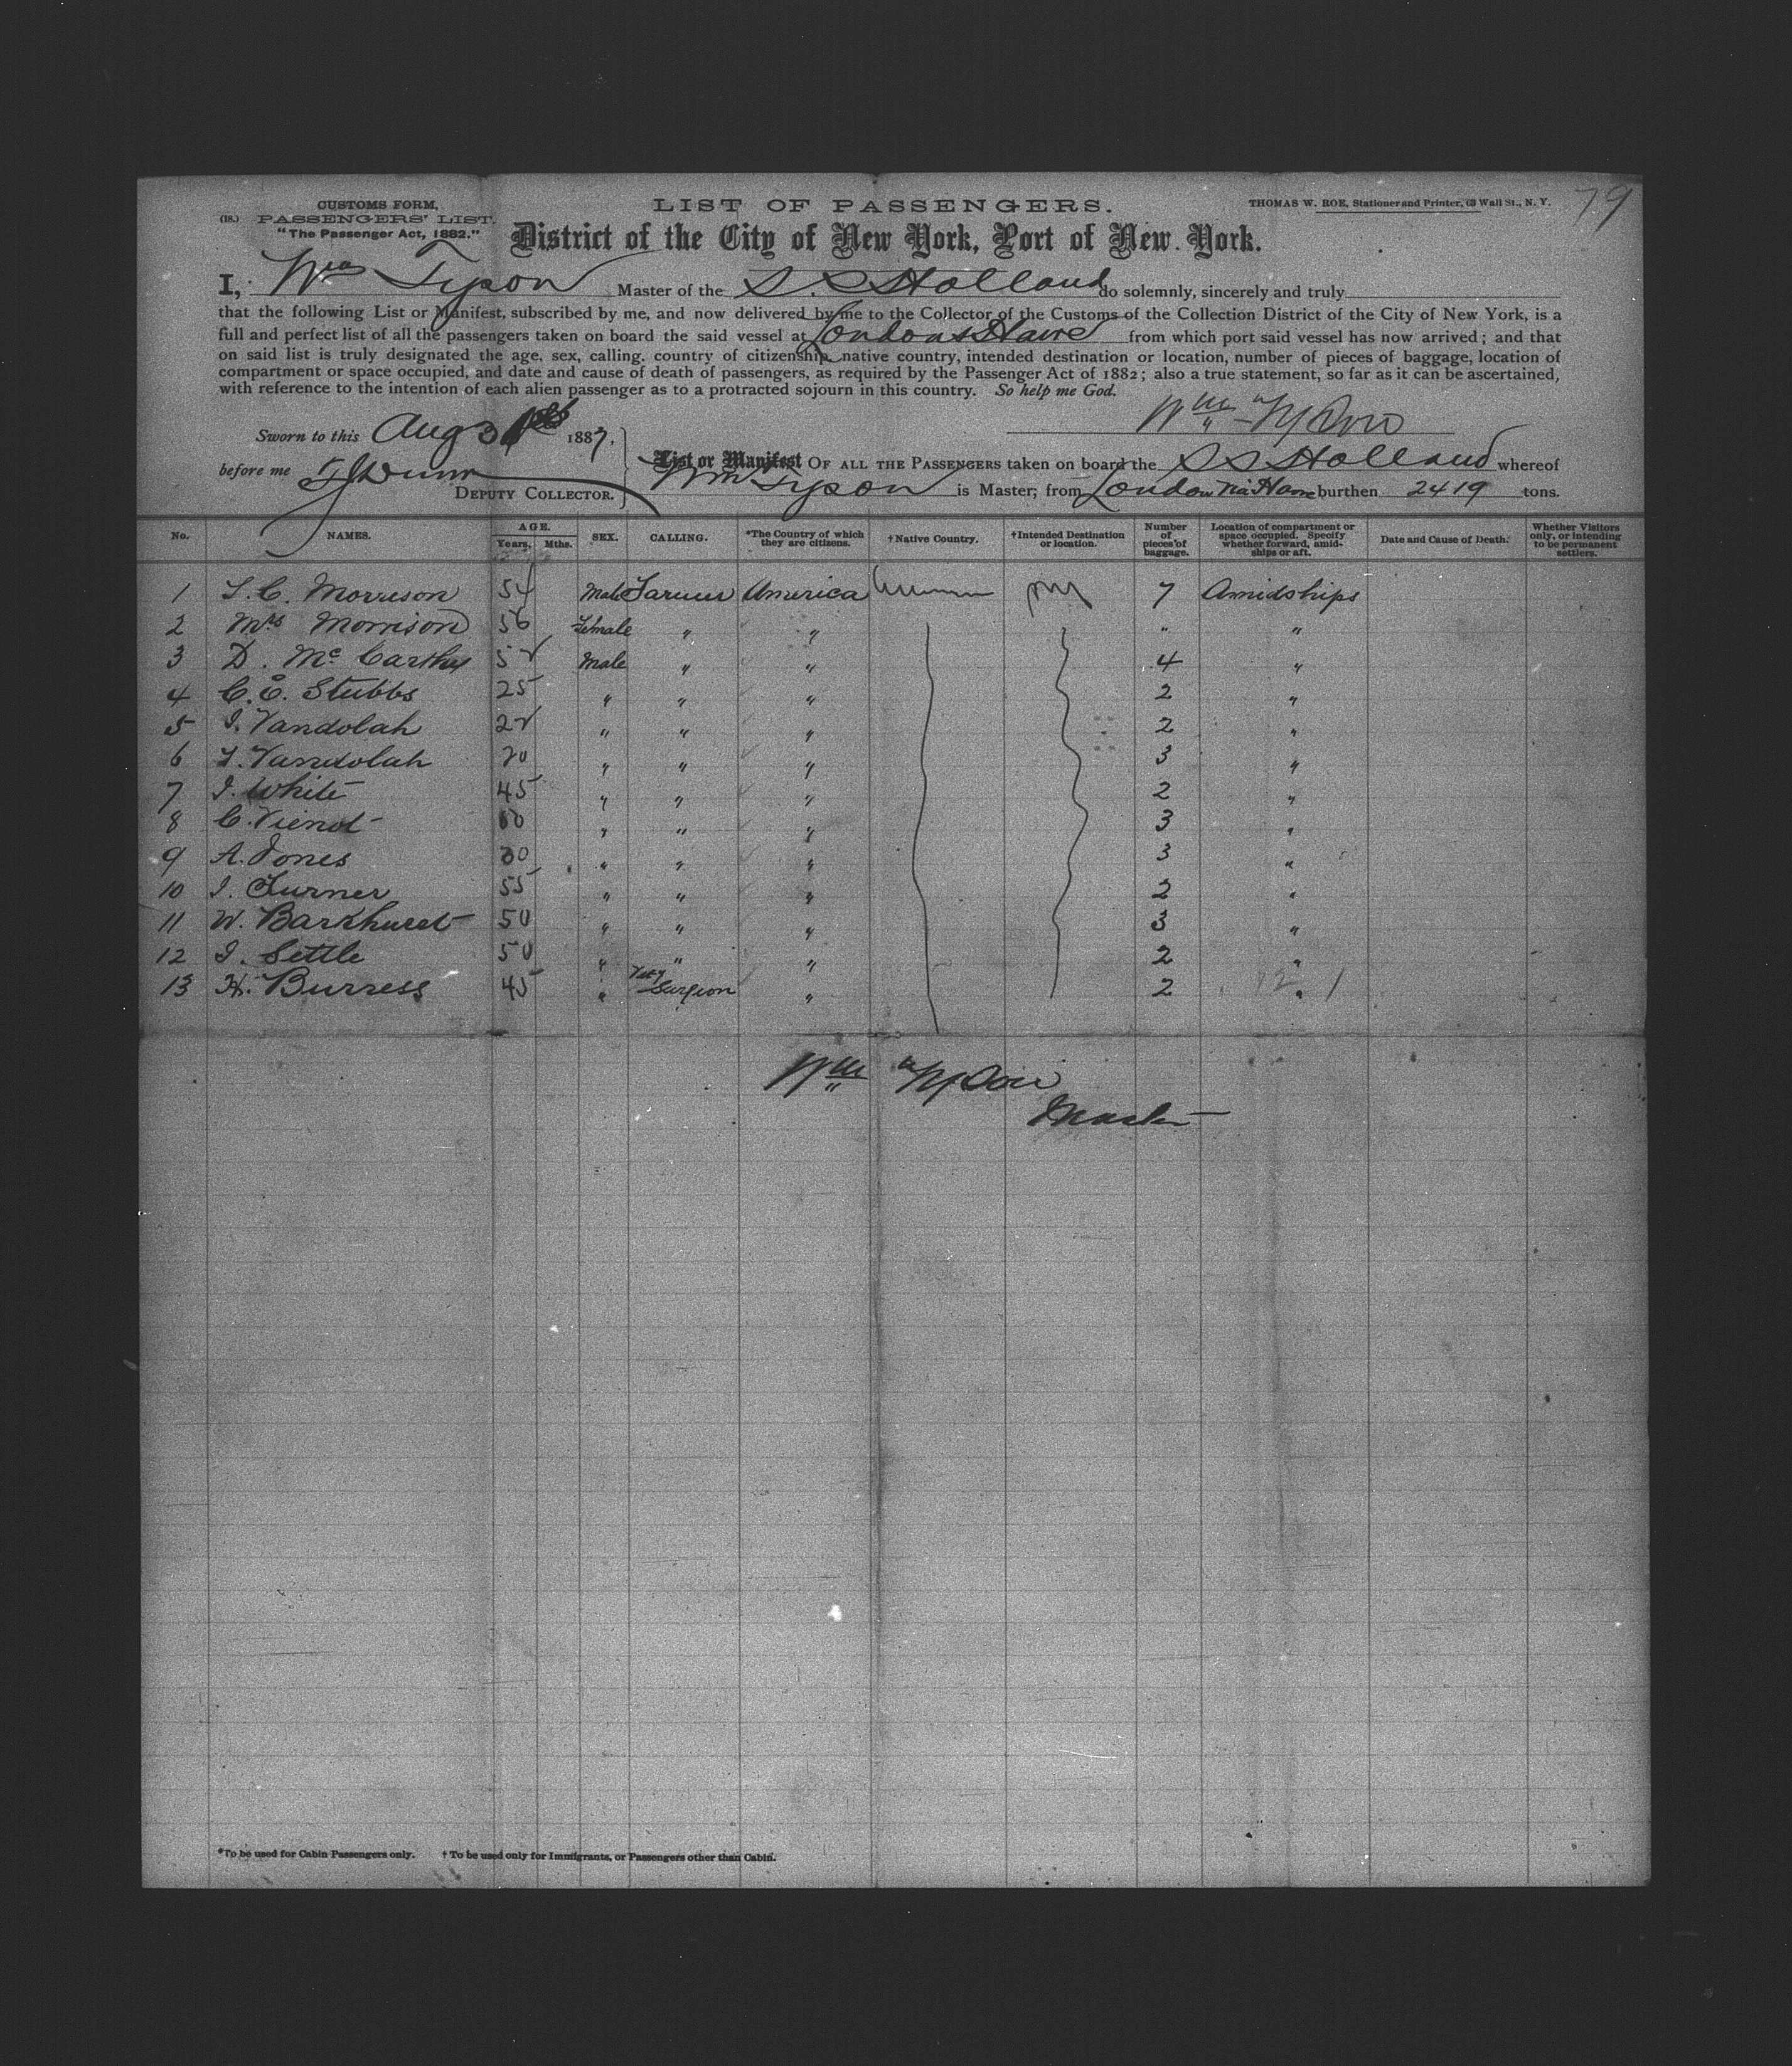 CUSTOMS FORM,
(18.) PASSENGERS' LIST.
"The Passenger Act, 1882."
LIST OF PASSENGERS.
THOMAS W. ROE, Stationer and Printer, 63 Wall St., N. Y.
79
District of the City of New York, Port of New York.
I, Wm Tyson Master of the S.S. Holland do solemnly, sincerely and truly
that the following List or Manifest, subscribed by me, and now delivered by me to the Collector of the Customs of the Collection District of the City of New York, is a
full and perfect list of all the passengers taken on board the said vessel at London & Havre from which port said vessel has now arrived; and that
on said list is truly designated the age, sex, calling, country of citizenship, native country, intended destination or location, number of pieces of baggage, location of
compartment or space occupied, and date and cause of death of passengers, as required by the Passenger Act of 1882; also a true statement, so far as it can be ascertained,
with reference to the intention of each alien passenger as to a protracted sojourn in this country. So help me God.
Wm Tyson
Sworn to this Aug 31st 1887,
before me
DEPUTY COLLECTOR.
List or Manifest OF ALL THE PASSENGERS taken on board the SS Holland whereof
Wm Tyson is Master; from London via Havre burthen 2419 tons.
No. NAMES. AGE. Years. Mths. SEX. CALLING. *The Country of which they are citizens. †Native Country. †Intended Destination or location. Number of pieces of baggage. Location of compartment or space occupied. Specify whether forward, amidships or aft. Date and Cause of Death. Whether Visitors only, or intending to be permanent settlers.
1 Morrison 54 Male Farmer America 7 Amidships
2 Mrs Morrison 56 Female " " " "
3 D. McCarthy 52 Male " " 4 "
4 C. E. Stubbs 25 " " " 2 "
5 I. Vandolah 22 " " " 2 "
6 Vandolah 20 " " " 3 "
7 I. White 45 " " " 2 "
8 C. Vienot " " " 3 "
9 A. Jones 30 " " " 3 "
10 I. Turner 55 " " " 2 "
11 W. Barkhurst 50 " " " 3 "
12 I. Settle 50 " " " 2 "
13 H. Burress 45 " Vety Surgeon " 2 "
Wm Tyson
Master
*To be used for Cabin Passengers only. †To be used only for Immigrants, or Passengers other than Cabin.